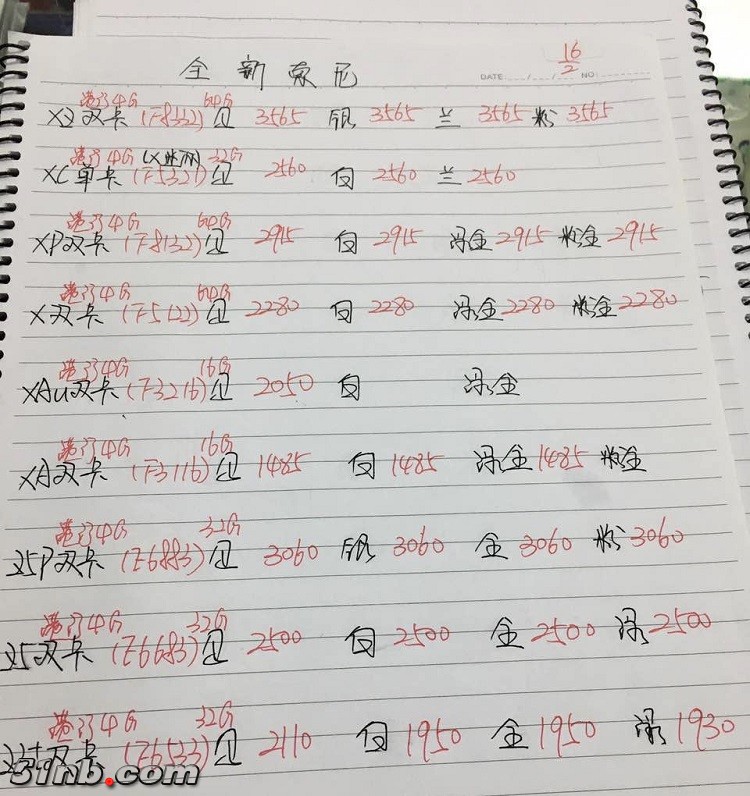 全新索尼
16/2
DATE / / NO:
港行4G 64G
XZ双卡(F8332) 3565 银 3565 兰 3565 粉 3565
港行4G 32G
XC单卡(F5321) 2560 白 2560 兰 2560
港行4G 64G
XP双卡(F8132) 2915 白 2915 2915 粉金 2915
港行4G 64G
X双卡(F5122) 2280 白 2280 2280 粉金 2280
港行4G 16G
XAu双卡(F3216) 2050 白
港行4G 16G
XA双卡(F3116) 1485 白 1485 1485 粉金
港行4G 32G
Z5P双卡(E6883) 3060 银 3060 金 3060 粉 3060
港行4G 32G
Z5双卡(E6683) 2500 白 2500 金 2500 2500
港行4G 32G
双卡(E6533) 2110 白 1950 金 1950 1930
51nb.com